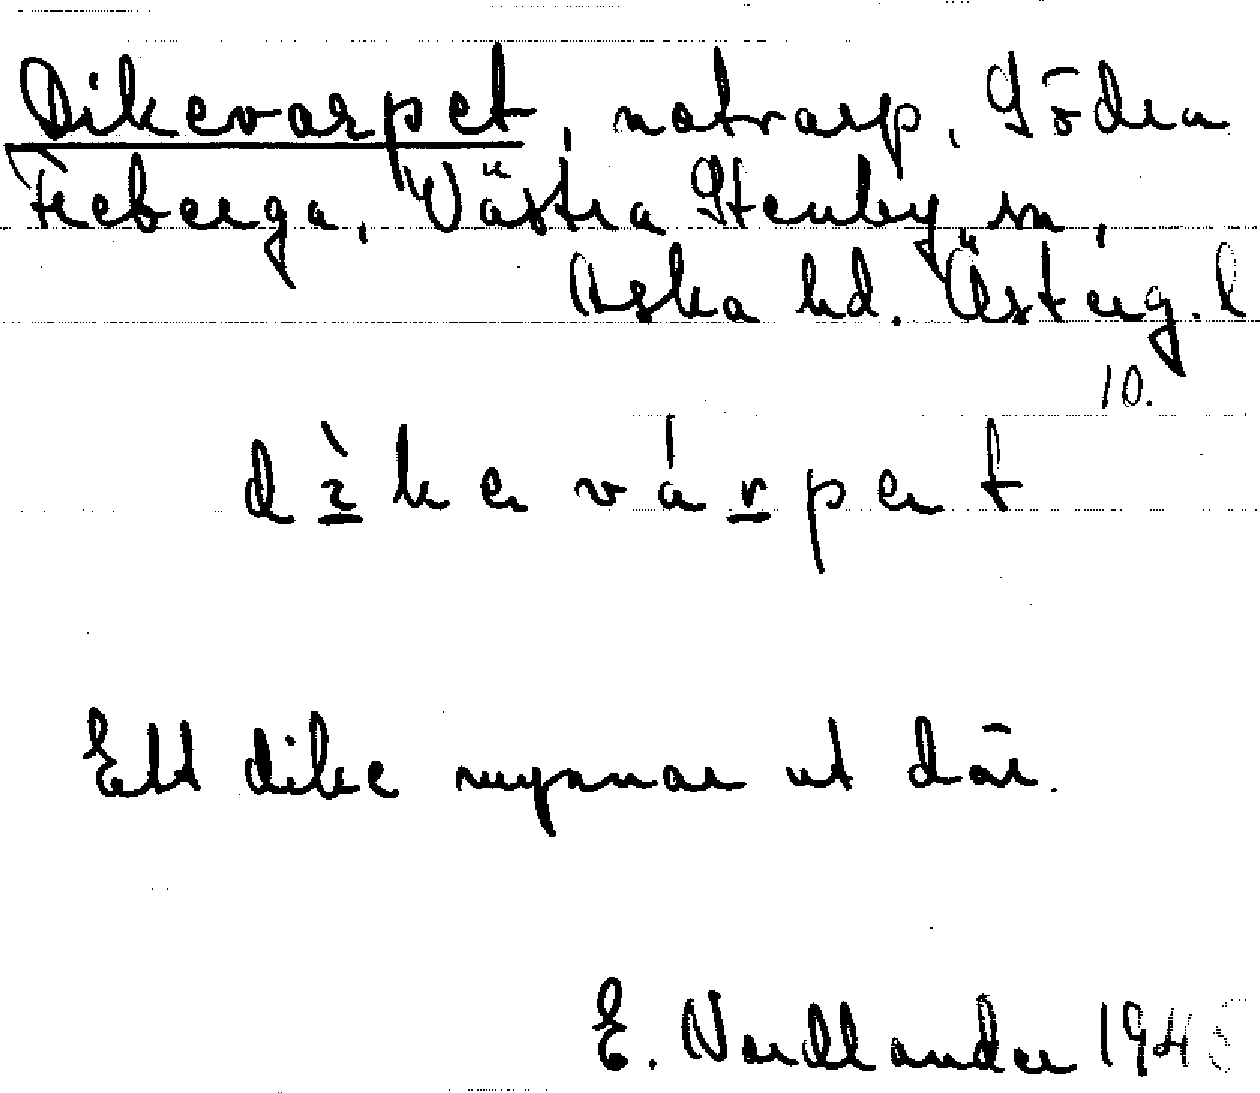 Dikevarpet, notvarp, Södra
Freberga, Västra Stenby sn,
Aska hd. Österg. l
10.
d ì k e v á r p e t
Ett dike mynnar ut där.
E. Nordlander 194